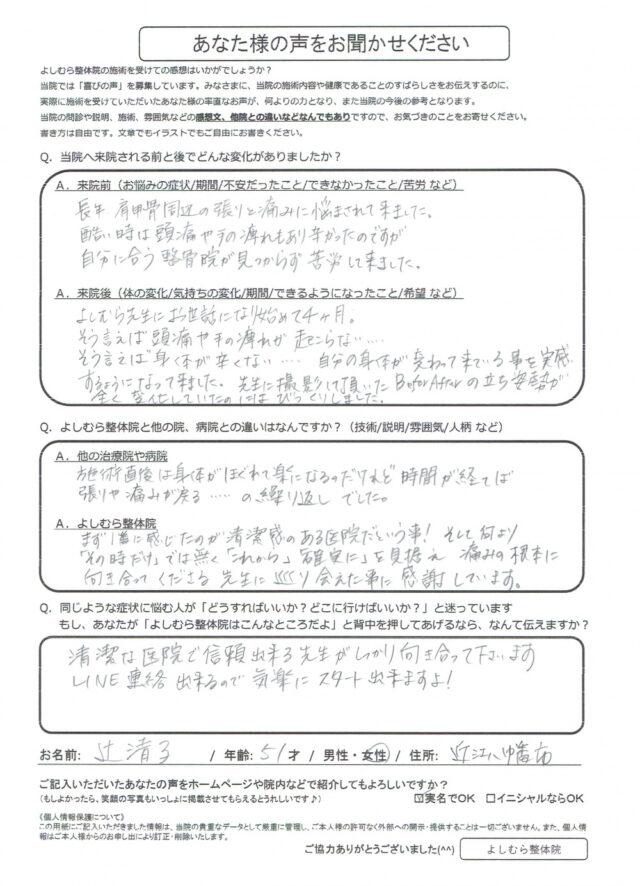 あなた様の声をお聞かせください
よしむら整体院の施術を受けての感想はいかがでしょうか？
当院では「喜びの声」を募集しています。みなさまに、当院の施術内容や健康であることのすばらしさをお伝えするのに、
実際に施術を受けていただいたあなた様の率直なお声が、何よりの力となり、また当院の今後の参考となります。
当院の問診や説明、施術、雰囲気などの感想文、他院との違いなどなんでもありですので、お気づきのことをお寄せください。
書き方は自由です。文章でもイラストでもご自由にお書きください。
Q. 当院へ来院される前と後でどんな変化がありましたか？
A. 来院前（お悩みの症状/期間/不安だったこと/できなかったこと/苦労 など）
長年 肩甲骨周辺の張りと痛みに悩まされて来ました。
酷い時は頭痛や手の痺れもあり辛かったのですが
自分に合う整骨院が見つからず苦労して来ました。
A. 来院後（体の変化/気持ちの変化/期間/できるようになったこと/希望 など）
よしむら先生にお世話になり始めて4ヶ月。
そう言えば頭痛や手の痺れが起こらない……
そう言えば身体が辛くない…… 自分の身体が変わって来ている事を実感
するようになって来ました。先生に撮影して頂いたBeforAfterの立ち姿勢が
全く変化していたのにはびっくりしました。
Q. よしむら整体院と他の院、病院との違いはなんですか？（技術/説明/雰囲気/人柄 など）
A. 他の治療院や病院
施術直後は身体がほぐれて楽になるのだけれど 時間が経てば
張りや痛みが戻る……の繰り返しでした。
A. よしむら整体院
まず1番に感じたのが清潔感のある医院だという事！ そして何より
「その時だけ」では無く「これから」「確実に」を見据え 痛みの根本に
向き合ってくださる先生に巡り会えた事に感謝しています。
Q. 同じような症状に悩む人が「どうすればいいか？どこに行けばいいか？」と迷っています
もし、あなたが「よしむら整体院はこんなところだよ」と背中を押してあげるなら、なんて伝えますか？
清潔な医院で信頼出来る先生がしっかり向き合って下さいます
LINE連絡出来るので気楽にスタート出来ますよ！
お名前： 辻 清子 / 年齢: 51才 / 男性・女性 / 住所: 近江八幡市
ご記入いただいたあなたの声をホームページや院内などで紹介してもよろしいですか？
（もしよかったら、笑顔の写真もいっしょに掲載させてもらえるとうれしいです♪） ☑実名でOK □イニシャルならOK
《個人情報保護について》
この用紙にご記入いただきました情報は、当院の貴重なデータとして厳重に管理し、ご本人様の許可なく外部への開示・提供することは一切ございません。また、個人情
報はご本人様からのお申し出により訂正・削除いたします。
ご協力ありがとうございました(^^) よしむら整体院